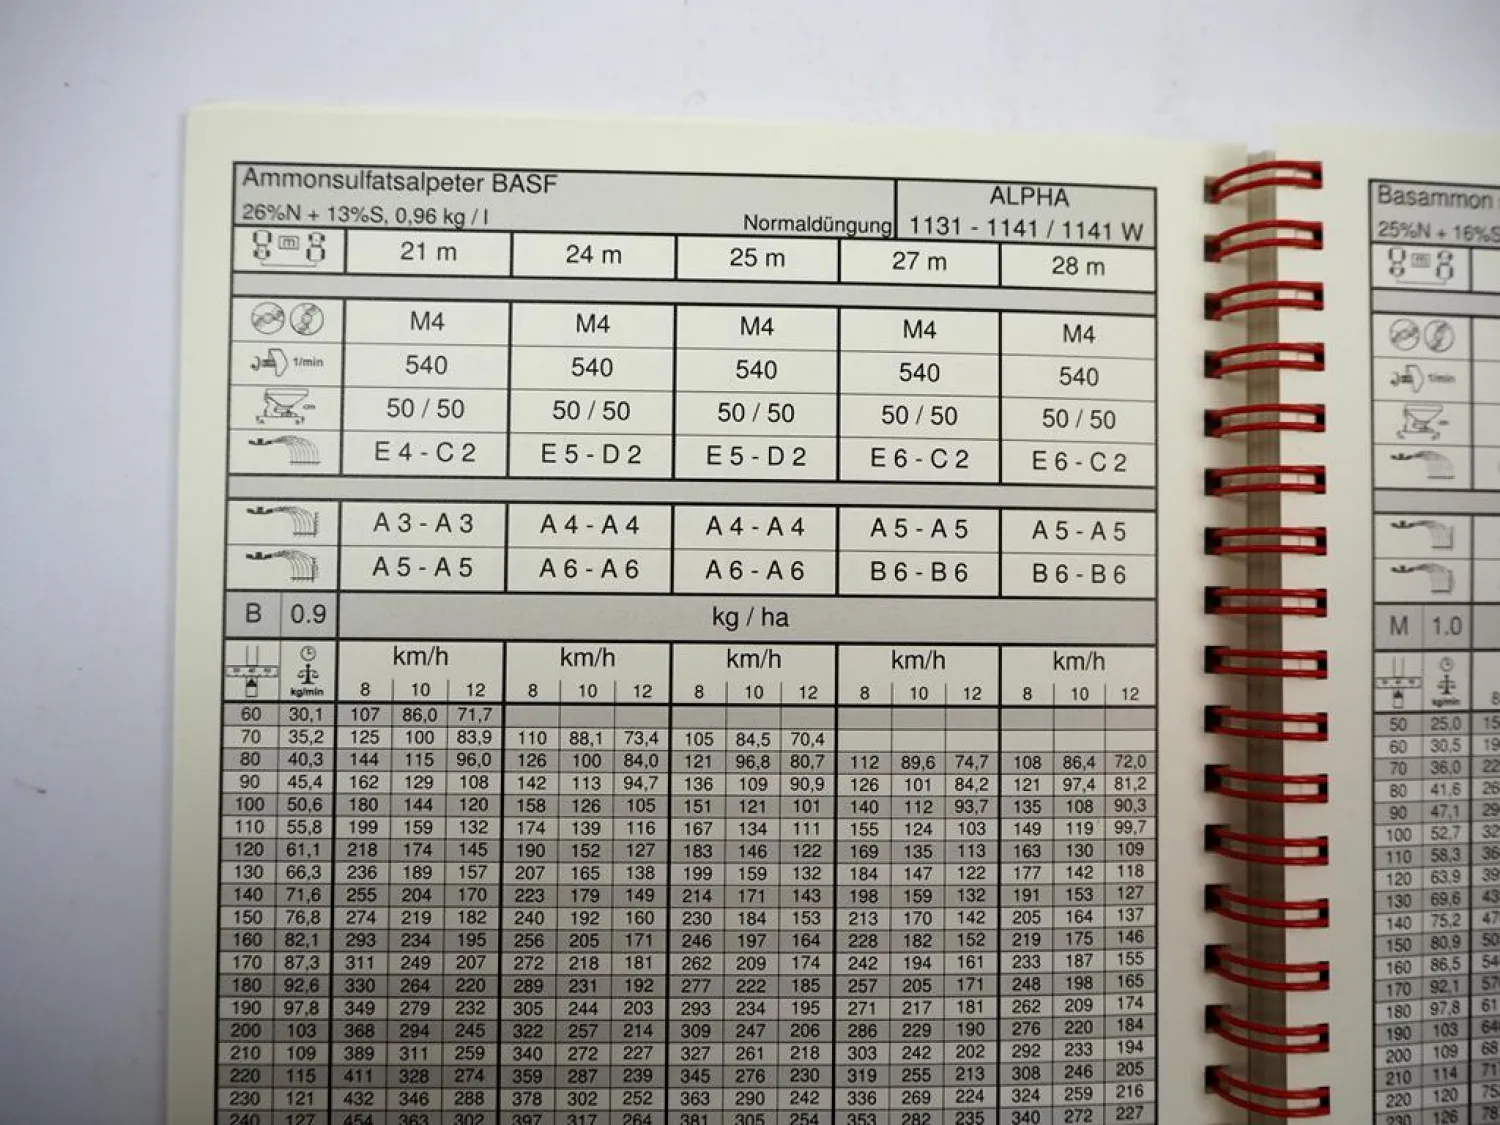 Ammonsulfatsalpeter BASF
26%N + 13%S, 0,96 kg / l Normaldüngung
ALPHA
1131 - 1141 / 1141 W
m 21 m 24 m 25 m 27 m 28 m
M4 M4 M4 M4 M4
1/min 540 540 540 540 540
cm 50 / 50 50 / 50 50 / 50 50 / 50 50 / 50
E 4 - C 2 E 5 - D 2 E 5 - D 2 E 6 - C 2 E 6 - C 2
A 3 - A 3 A 4 - A 4 A 4 - A 4 A 5 - A 5 A 5 - A 5
A 5 - A 5 A 6 - A 6 A 6 - A 6 B 6 - B 6 B 6 - B 6
B 0.9 kg / ha
km/h km/h km/h km/h km/h
kg/min 8 10 12 8 10 12 8 10 12 8 10 12 8 10 12
60 30,1 107 86,0 71,7
70 35,2 125 100 83,9 110 88,1 73,4 105 84,5 70,4
80 40,3 144 115 96,0 126 100 84,0 121 96,8 80,7 112 89,6 74,7 108 86,4 72,0
90 45,4 162 129 108 142 113 94,7 136 109 90,9 126 101 84,2 121 97,4 81,2
100 50,6 180 144 120 158 126 105 151 121 101 140 112 93,7 135 108 90,3
110 55,8 199 159 132 174 139 116 167 134 111 155 124 103 149 119 99,7
120 61,1 218 174 145 190 152 127 183 146 122 169 135 113 163 130 109
130 66,3 236 189 157 207 165 138 199 159 132 184 147 122 177 142 118
140 71,6 255 204 170 223 179 149 214 171 143 198 159 132 191 153 127
150 76,8 274 219 182 240 192 160 230 184 153 213 170 142 205 164 137
160 82,1 293 234 195 256 205 171 246 197 164 228 182 152 219 175 146
170 87,3 311 249 207 272 218 181 262 209 174 242 194 161 233 187 155
180 92,6 330 264 220 289 231 192 277 222 185 257 205 171 248 198 165
190 97,8 349 279 232 305 244 203 293 234 195 271 217 181 262 209 174
200 103 368 294 245 322 257 214 309 247 206 286 229 190 276 220 184
210 109 389 311 259 340 272 227 327 261 218 303 242 202 292 233 194
220 115 411 328 274 359 287 239 345 276 230 319 255 213 308 246 205
230 121 432 346 288 378 302 252 363 290 242 336 269 224 324 259 216
240 127 454 363 302 397 317 264 381 305 254 353 282 235 340 272 227
Basammon
25%N + 16%S
m
1/min
M 1.0
kg/min
50 25,0
60 30,5
70 36,0
80 41,6
90 47,1
100 52,7
110 58,3
120 63,9
130 69,6
140 75,2
150 80,9
160 86,5
170 92,1
180 97,8
190 103
200 109
210 114
220 120
230 126